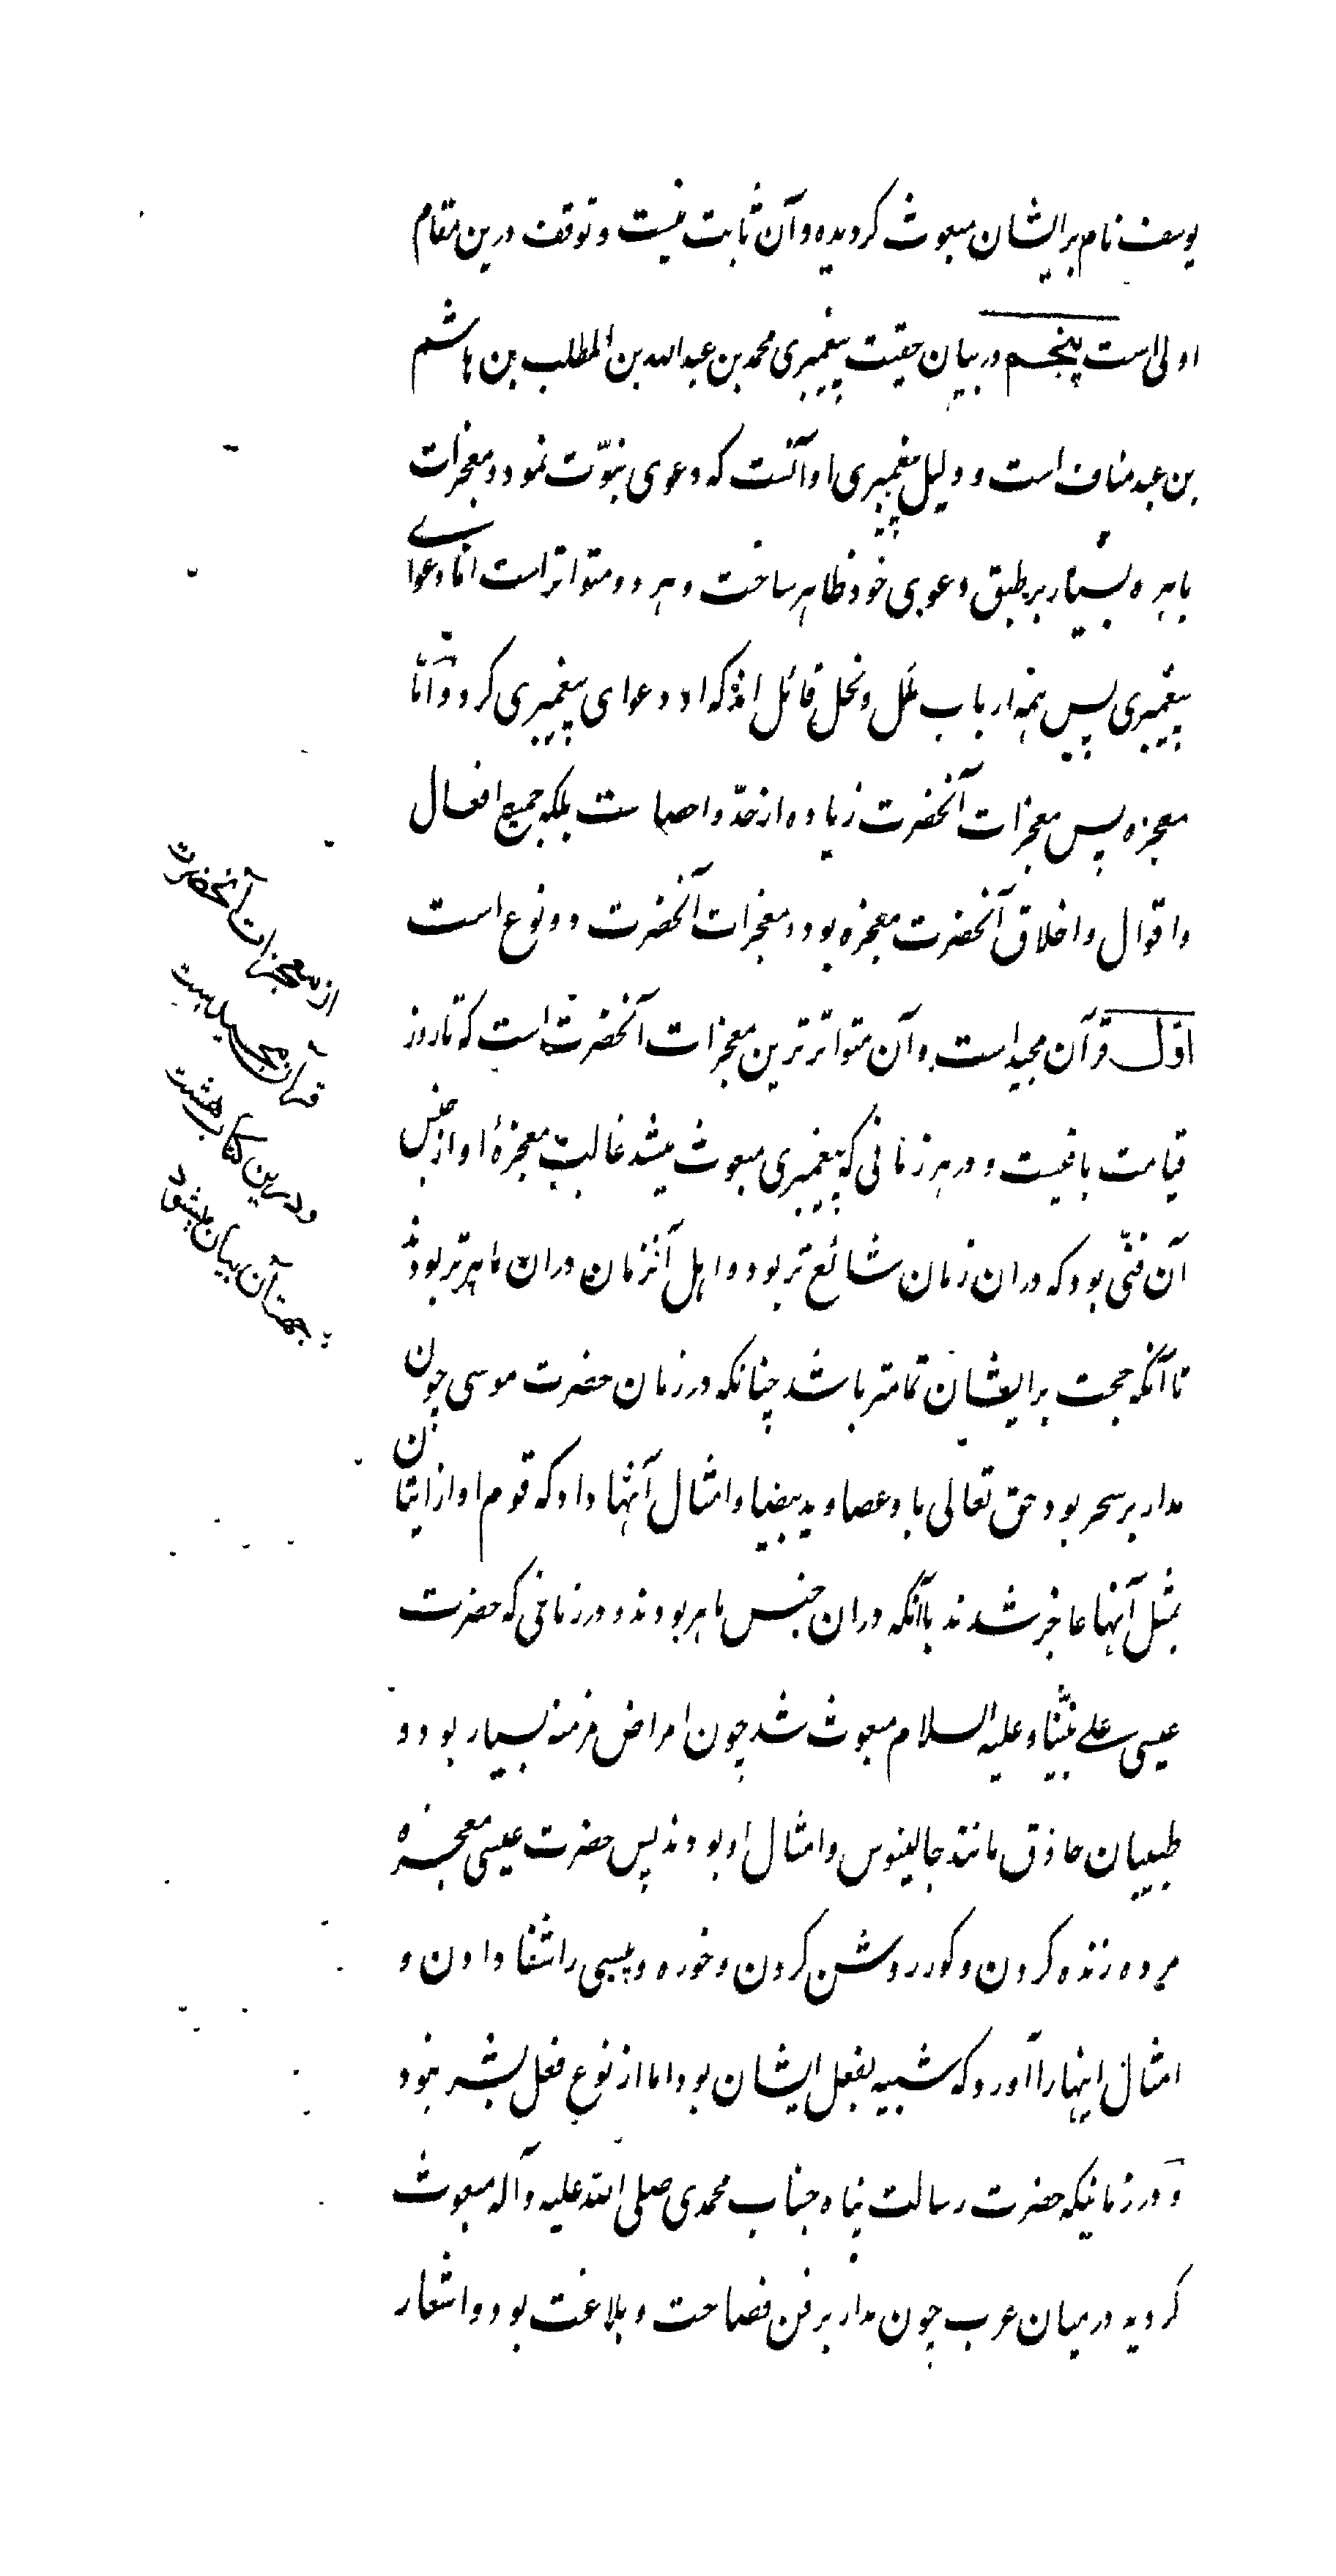 یوسف نام بر ایشان مبعوث گردیده و آن ثابت نیست و توقف درین مقام
اولی است پنجم در بیان حقیت پیغمبری محمد بن عبدالله بن المطلب بن هاشم
بن عبد مناف است و دلیل پیغمبری او آنست که دعوی نبوّت نمود و معجزات
باهره بسیار بر طبق دعوی خود ظاهر ساخت و هر دو متواتر است امّا دعوای
پیغمبری پس همه ارباب ملل و نحل قائل اند که او دعوای پیغمبری کرد و امّا
معجزه پس معجزات آنحضرت زیاده از حدّ و احصا ست بلکه جمیع افعال
و اقوال و اخلاق آنحضرت معجزه بود و معجزات آنحضرت دو نوع است
اوّل قرآن مجید است و آن متواترترین معجزات آنحضرت است که تا روز
قیامت باقیست و در هر زمانی که پیغمبری مبعوث میشد غالب معجزهٔ او از جنس
آن فنّی بود که دران زمان شائع تر بود و اهل آنزمان دران ماهرتر بودند
تا آنکه حجت بر ایشان تمامتر باشد چنانکه در زمان حضرت موسی چون
مدار بر سحر بود حق تعالی باو عصا و ید بیضا و امثال آنها داد که قوم او از اتیان
بمثل آنها عاجز شدند با آنکه دران جنس ماهر بودند و در زمانی که حضرت
عیسی علی نبیّنا و علیه السلام مبعوث شد چون امراض مزمنه بسیار بود و
طبیبان حاذق مانند جالینوس و امثال او بودند پس حضرت عیسی معجزه
مرده زنده کردن و کور روشن کردن و خوره و پیسی را شفا دادن و
امثال اینها را آورد که شبیه بفعل ایشان بود اما از نوع فعل بشر نبود
و در زمانیکه حضرت رسالت پناه جناب محمدی صلی الله علیه و آله مبعوث
گردید در میان عرب چون مدار بر فن فصاحت و بلاغت بود و اشعار
از معجزات آنحضرت
قرآن مجید است
و درین کتاب هشت
جهت آن بیان میشود